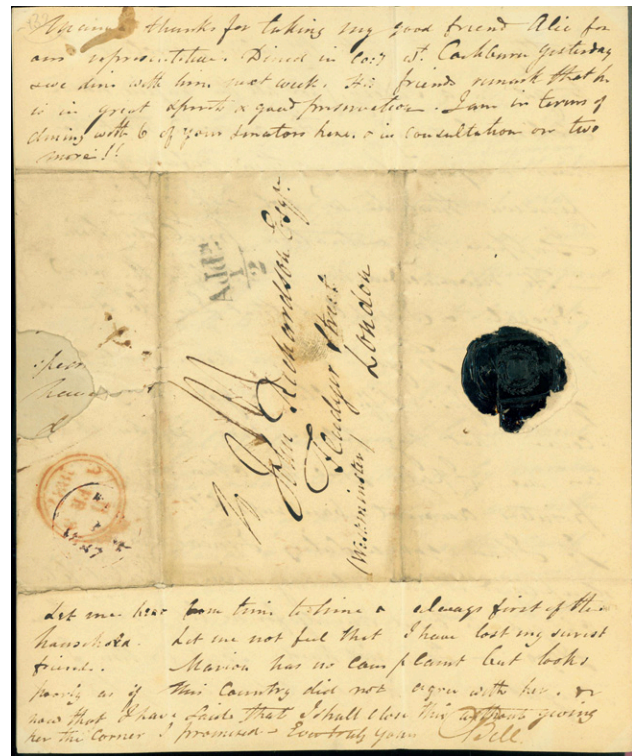 thanks for taking my good friend Alic for
our representative. Dined in Co: wt. Cockburn yesterday
& we dine with him next week. His friends remark that he
is in great spirits & good preservation. I am in terms of
dining with 6 of your senators here. & in consultation on two
more!!
Addl
1/2
John Richardson Esqr.
Fludyer Street
London
(Westminster)
Let me hear from time to time & always first of the
household. Let me not feel that I have lost my surest
friend. Marion has no complaint but looks
poorly as if this Country did not agree with her. &
now that I have said that I shall close this without giving
her the Corner I promised. Ever truly yours